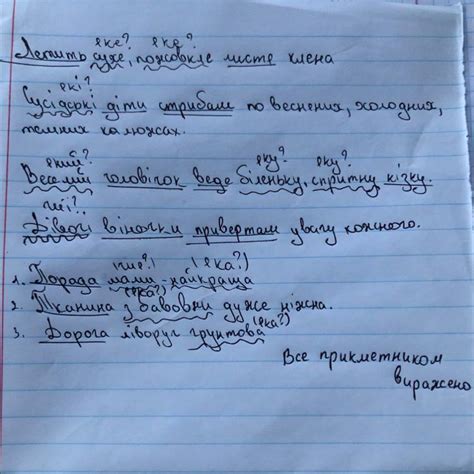 яке? яке?
Летить сухе, пожовкле листе клена
які?
Сусідські діти стрибали по весняних, холодних,
темних калюжах.
який? яку? яку?
Веселий чоловічок веде біленьку, спритну кізку.
чиї?
Дівочі віночки привертали увагу кожного.
чия?) (яка?)
1. Порада мами - найкраща
(яка?)
2. Тканина з бавовни дуже ніжна.
(яка?)
3. Дорога ліворуч грунтова
Все прикметником
виражено